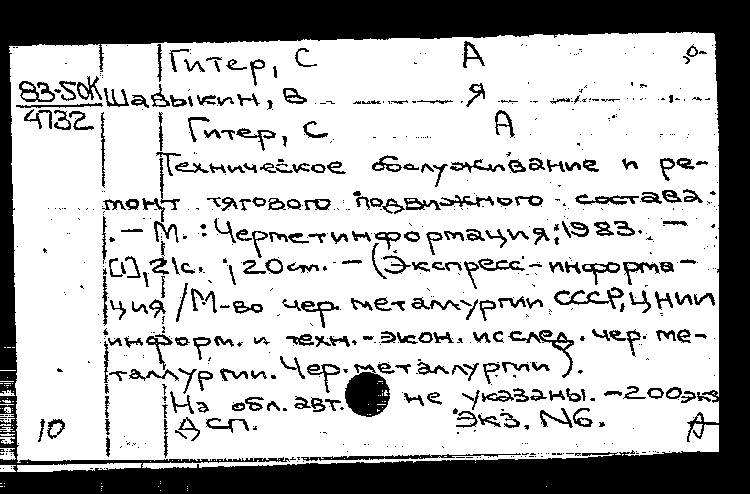 Гитер, С А
83-50К Шавыкин, В Я
4732
Гитер, С А
Техническое обслуживание и ре-
монт тягового подвижного состава.
. — М. : Черметинформация, 1983. —
[1], 21с. ; 20см. — (Экспресс-информа-
ция / М-во чер. металлургии СССР, ЦНИИ
информ. и техн.-экон. исслед. чер. ме-
таллургии. Чер. металлургии).
На обл. авт. не указаны. — 200экз
10 ДСП. Экз. N6. А